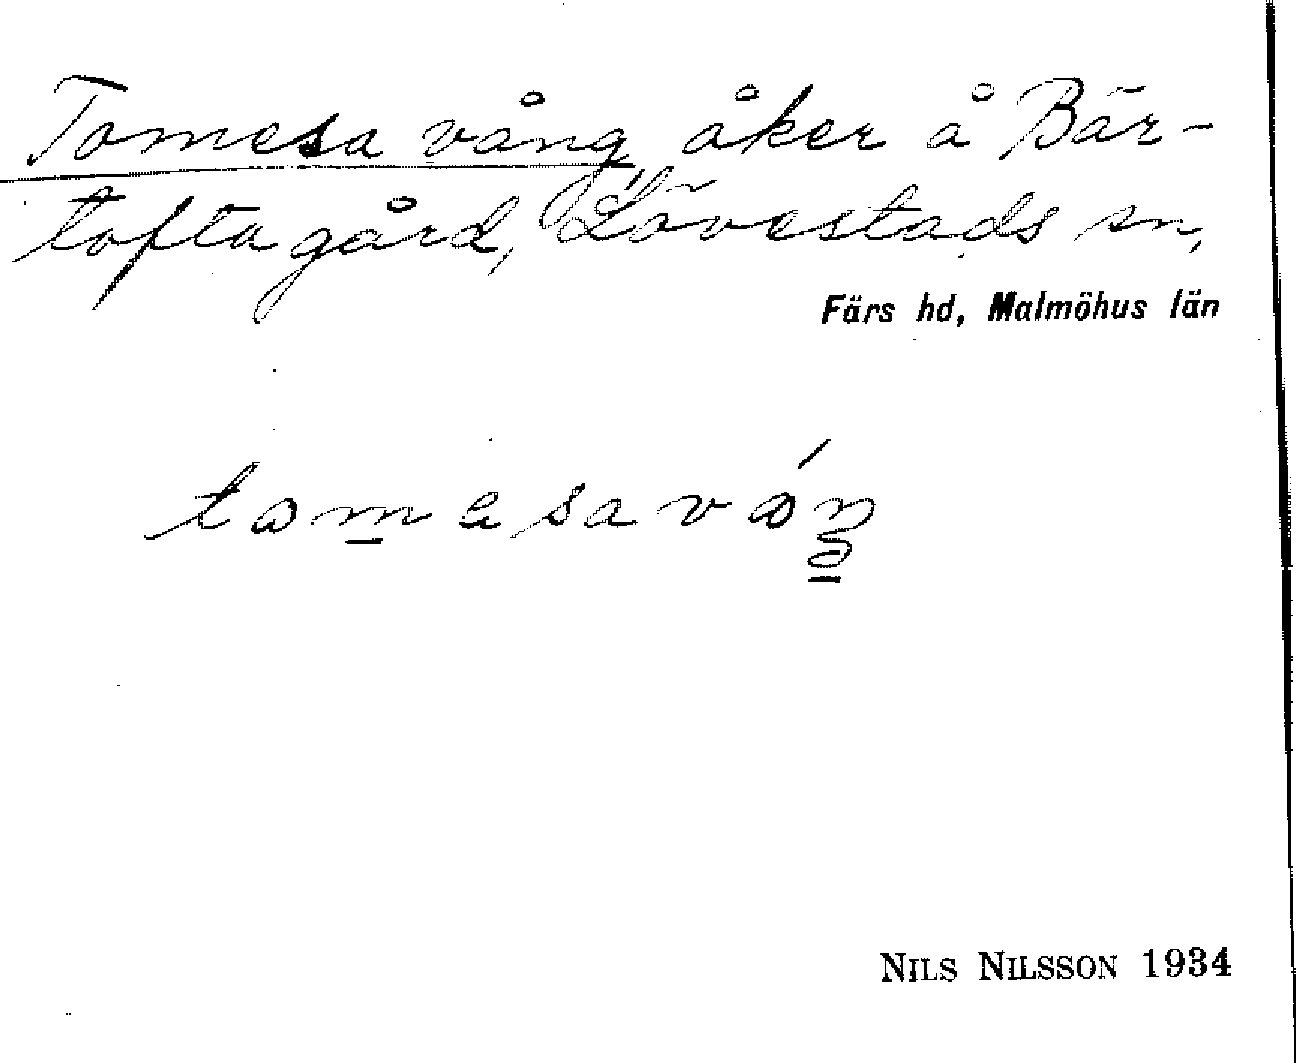 Tomesa vång, åker å Bär-
toftagård, Lövestads sn,
Färs hd, Malmöhus län
tomesavóŋ
NILS NILSSON 1934